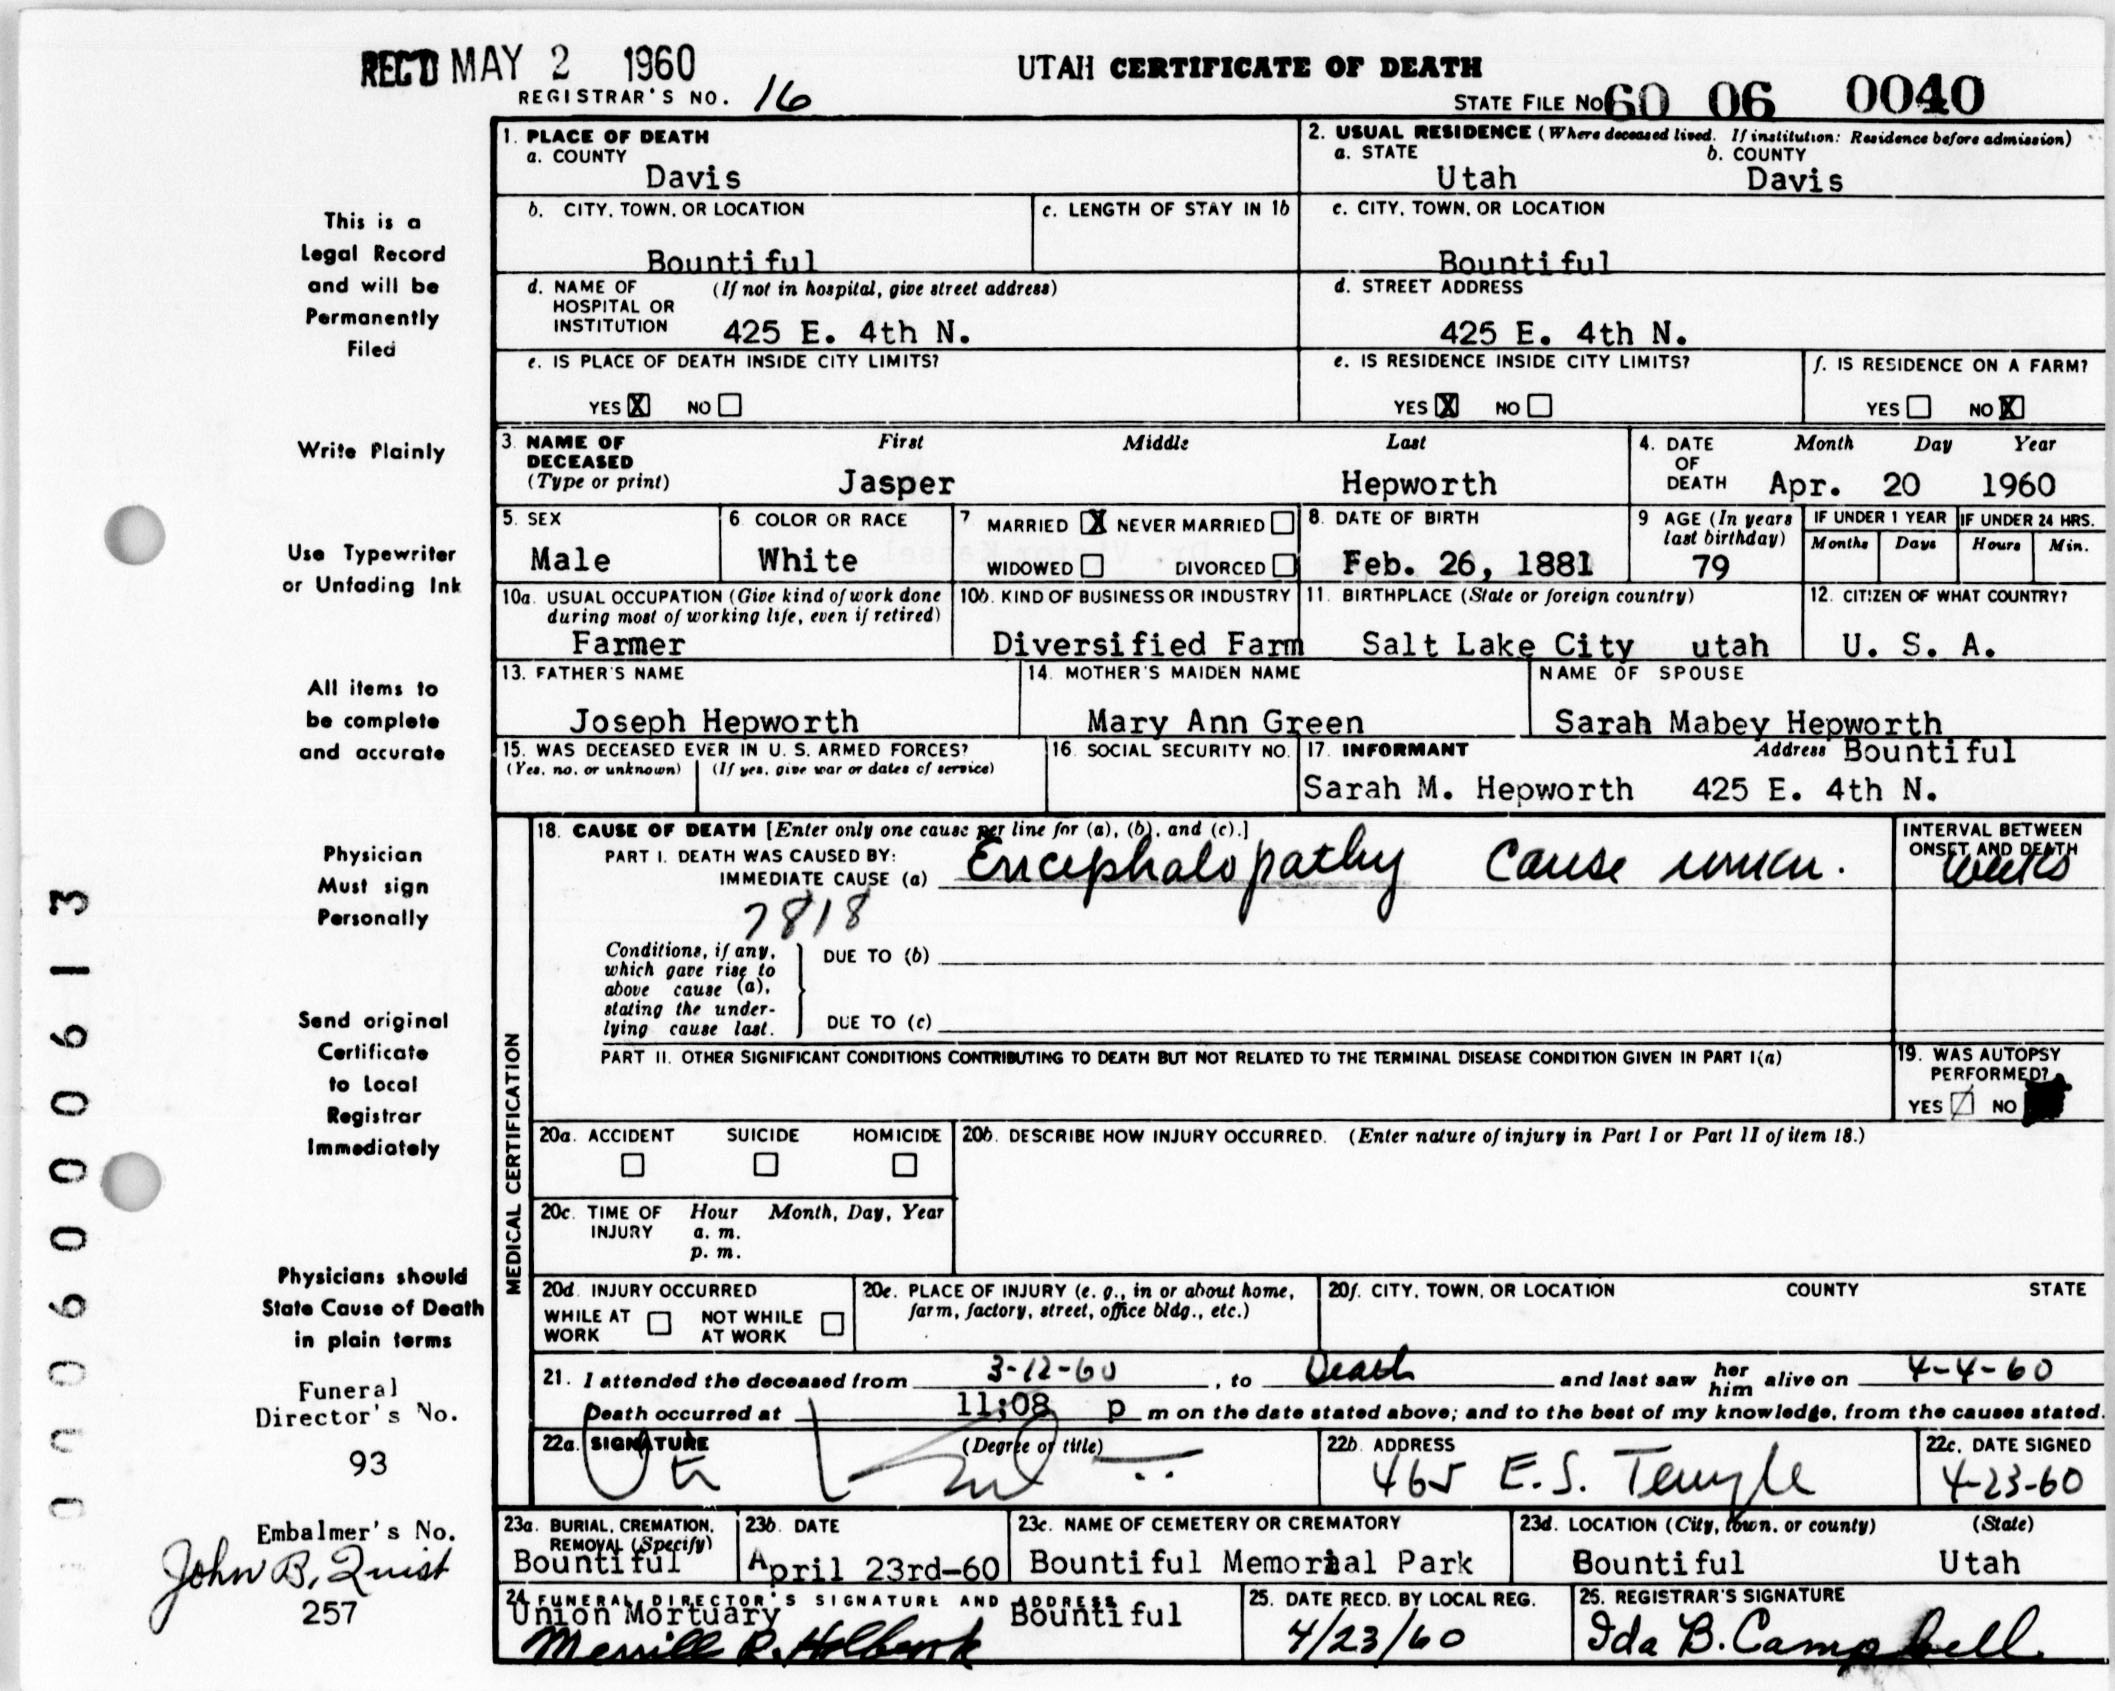 REC'D MAY 2 1960
UTAH CERTIFICATE OF DEATH
REGISTRAR'S NO. 16
STATE FILE NO 60 06 0040
This is a
Legal Record
and will be
Permanently
Filed
Write Plainly
Use Typewriter
or Unfading Ink
All items to
be complete
and accurate
Physician
Must sign
Personally
Send original
Certificate
to Local
Registrar
Immediately
Physicians should
State Cause of Death
in plain terms
Funeral
Director's No.
93
Embalmer's No.
John B. Quist
257
1. PLACE OF DEATH
a. COUNTY
Davis
2. USUAL RESIDENCE (Where deceased lived. If institution: Residence before admission)
a. STATE b. COUNTY
Utah Davis
b. CITY, TOWN, OR LOCATION
Bountiful
c. LENGTH OF STAY IN 1b
c. CITY, TOWN, OR LOCATION
Bountiful
d. NAME OF (If not in hospital, give street address)
HOSPITAL OR
INSTITUTION 425 E. 4th N.
d. STREET ADDRESS
425 E. 4th N.
e. IS PLACE OF DEATH INSIDE CITY LIMITS?
YES X NO
e. IS RESIDENCE INSIDE CITY LIMITS?
YES X NO
f. IS RESIDENCE ON A FARM?
YES NO X
3. NAME OF First Middle Last
DECEASED
(Type or print) Jasper Hepworth
4. DATE Month Day Year
OF
DEATH Apr. 20 1960
5. SEX
Male
6. COLOR OR RACE
White
7 MARRIED X NEVER MARRIED
WIDOWED DIVORCED
8. DATE OF BIRTH
Feb. 26, 1881
9 AGE (In years
last birthday)
79
IF UNDER 1 YEAR IF UNDER 24 HRS.
Months Days Hours Min.
10a. USUAL OCCUPATION (Give kind of work done
during most of working life, even if retired)
Farmer
10b. KIND OF BUSINESS OR INDUSTRY
Diversified Farm
11. BIRTHPLACE (State or foreign country)
Salt Lake City utah
12. CITIZEN OF WHAT COUNTRY?
U. S. A.
13. FATHER'S NAME
Joseph Hepworth
14. MOTHER'S MAIDEN NAME
Mary Ann Green
NAME OF SPOUSE
Sarah Mabey Hepworth
15. WAS DECEASED EVER IN U. S. ARMED FORCES?
(Yes, no, or unknown) (If yes, give war or dates of service)
16. SOCIAL SECURITY NO.
17. INFORMANT Address Bountiful
Sarah M. Hepworth 425 E. 4th N.
MEDICAL CERTIFICATION
18. CAUSE OF DEATH [Enter only one cause per line for (a), (b), and (c).]
PART I. DEATH WAS CAUSED BY:
IMMEDIATE CAUSE (a) Encephalopathy Cause
INTERVAL BETWEEN
ONSET AND DEATH
weeks
7818
Conditions, if any,
which gave rise to
above cause (a),
stating the under-
lying cause last.
DUE TO (b)
DUE TO (c)
PART II. OTHER SIGNIFICANT CONDITIONS CONTRIBUTING TO DEATH BUT NOT RELATED TO THE TERMINAL DISEASE CONDITION GIVEN IN PART I(a)
19. WAS AUTOPSY
PERFORMED?
YES NO
20a. ACCIDENT SUICIDE HOMICIDE
20b. DESCRIBE HOW INJURY OCCURRED. (Enter nature of injury in Part I or Part II of item 18.)
20c. TIME OF Hour Month, Day, Year
INJURY a. m.
p. m.
20d. INJURY OCCURRED
WHILE AT NOT WHILE
WORK AT WORK
20e. PLACE OF INJURY (e. g., in or about home,
farm, factory, street, office bldg., etc.)
20f. CITY, TOWN, OR LOCATION COUNTY STATE
21. I attended the deceased from 3-12-60, to Death and last saw her him alive on 4-4-60
Death occurred at 11:08 p m on the date stated above; and to the best of my knowledge, from the causes stated.
22a. SIGNATURE (Degree or title)
22b. ADDRESS
465 E. S. Temple
22c. DATE SIGNED
4-23-60
23a. BURIAL, CREMATION,
REMOVAL (Specify)
Bountiful
23b. DATE
April 23rd-60
23c. NAME OF CEMETERY OR CREMATORY
Bountiful Memorial Park
23d. LOCATION (City, town, or county) (State)
Bountiful Utah
24 FUNERAL DIRECTOR'S SIGNATURE AND ADDRESS
Union Mortuary Bountiful
Merrill R. Holbrook
25. DATE RECD. BY LOCAL REG.
4/23/60
25. REGISTRAR'S SIGNATURE
Ida B. Campbell